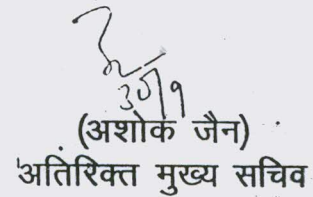 30/9
(अशोक जैन)
अतिरिक्त मुख्य सचिव